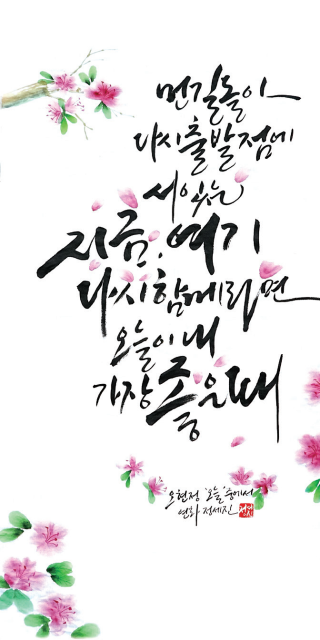 먼길돌아
다시출발점에
서있는
지금, 여기
다시함께라면
오늘이 내
가장 좋은때
오현정 '오늘' 중에서
연화 정세진